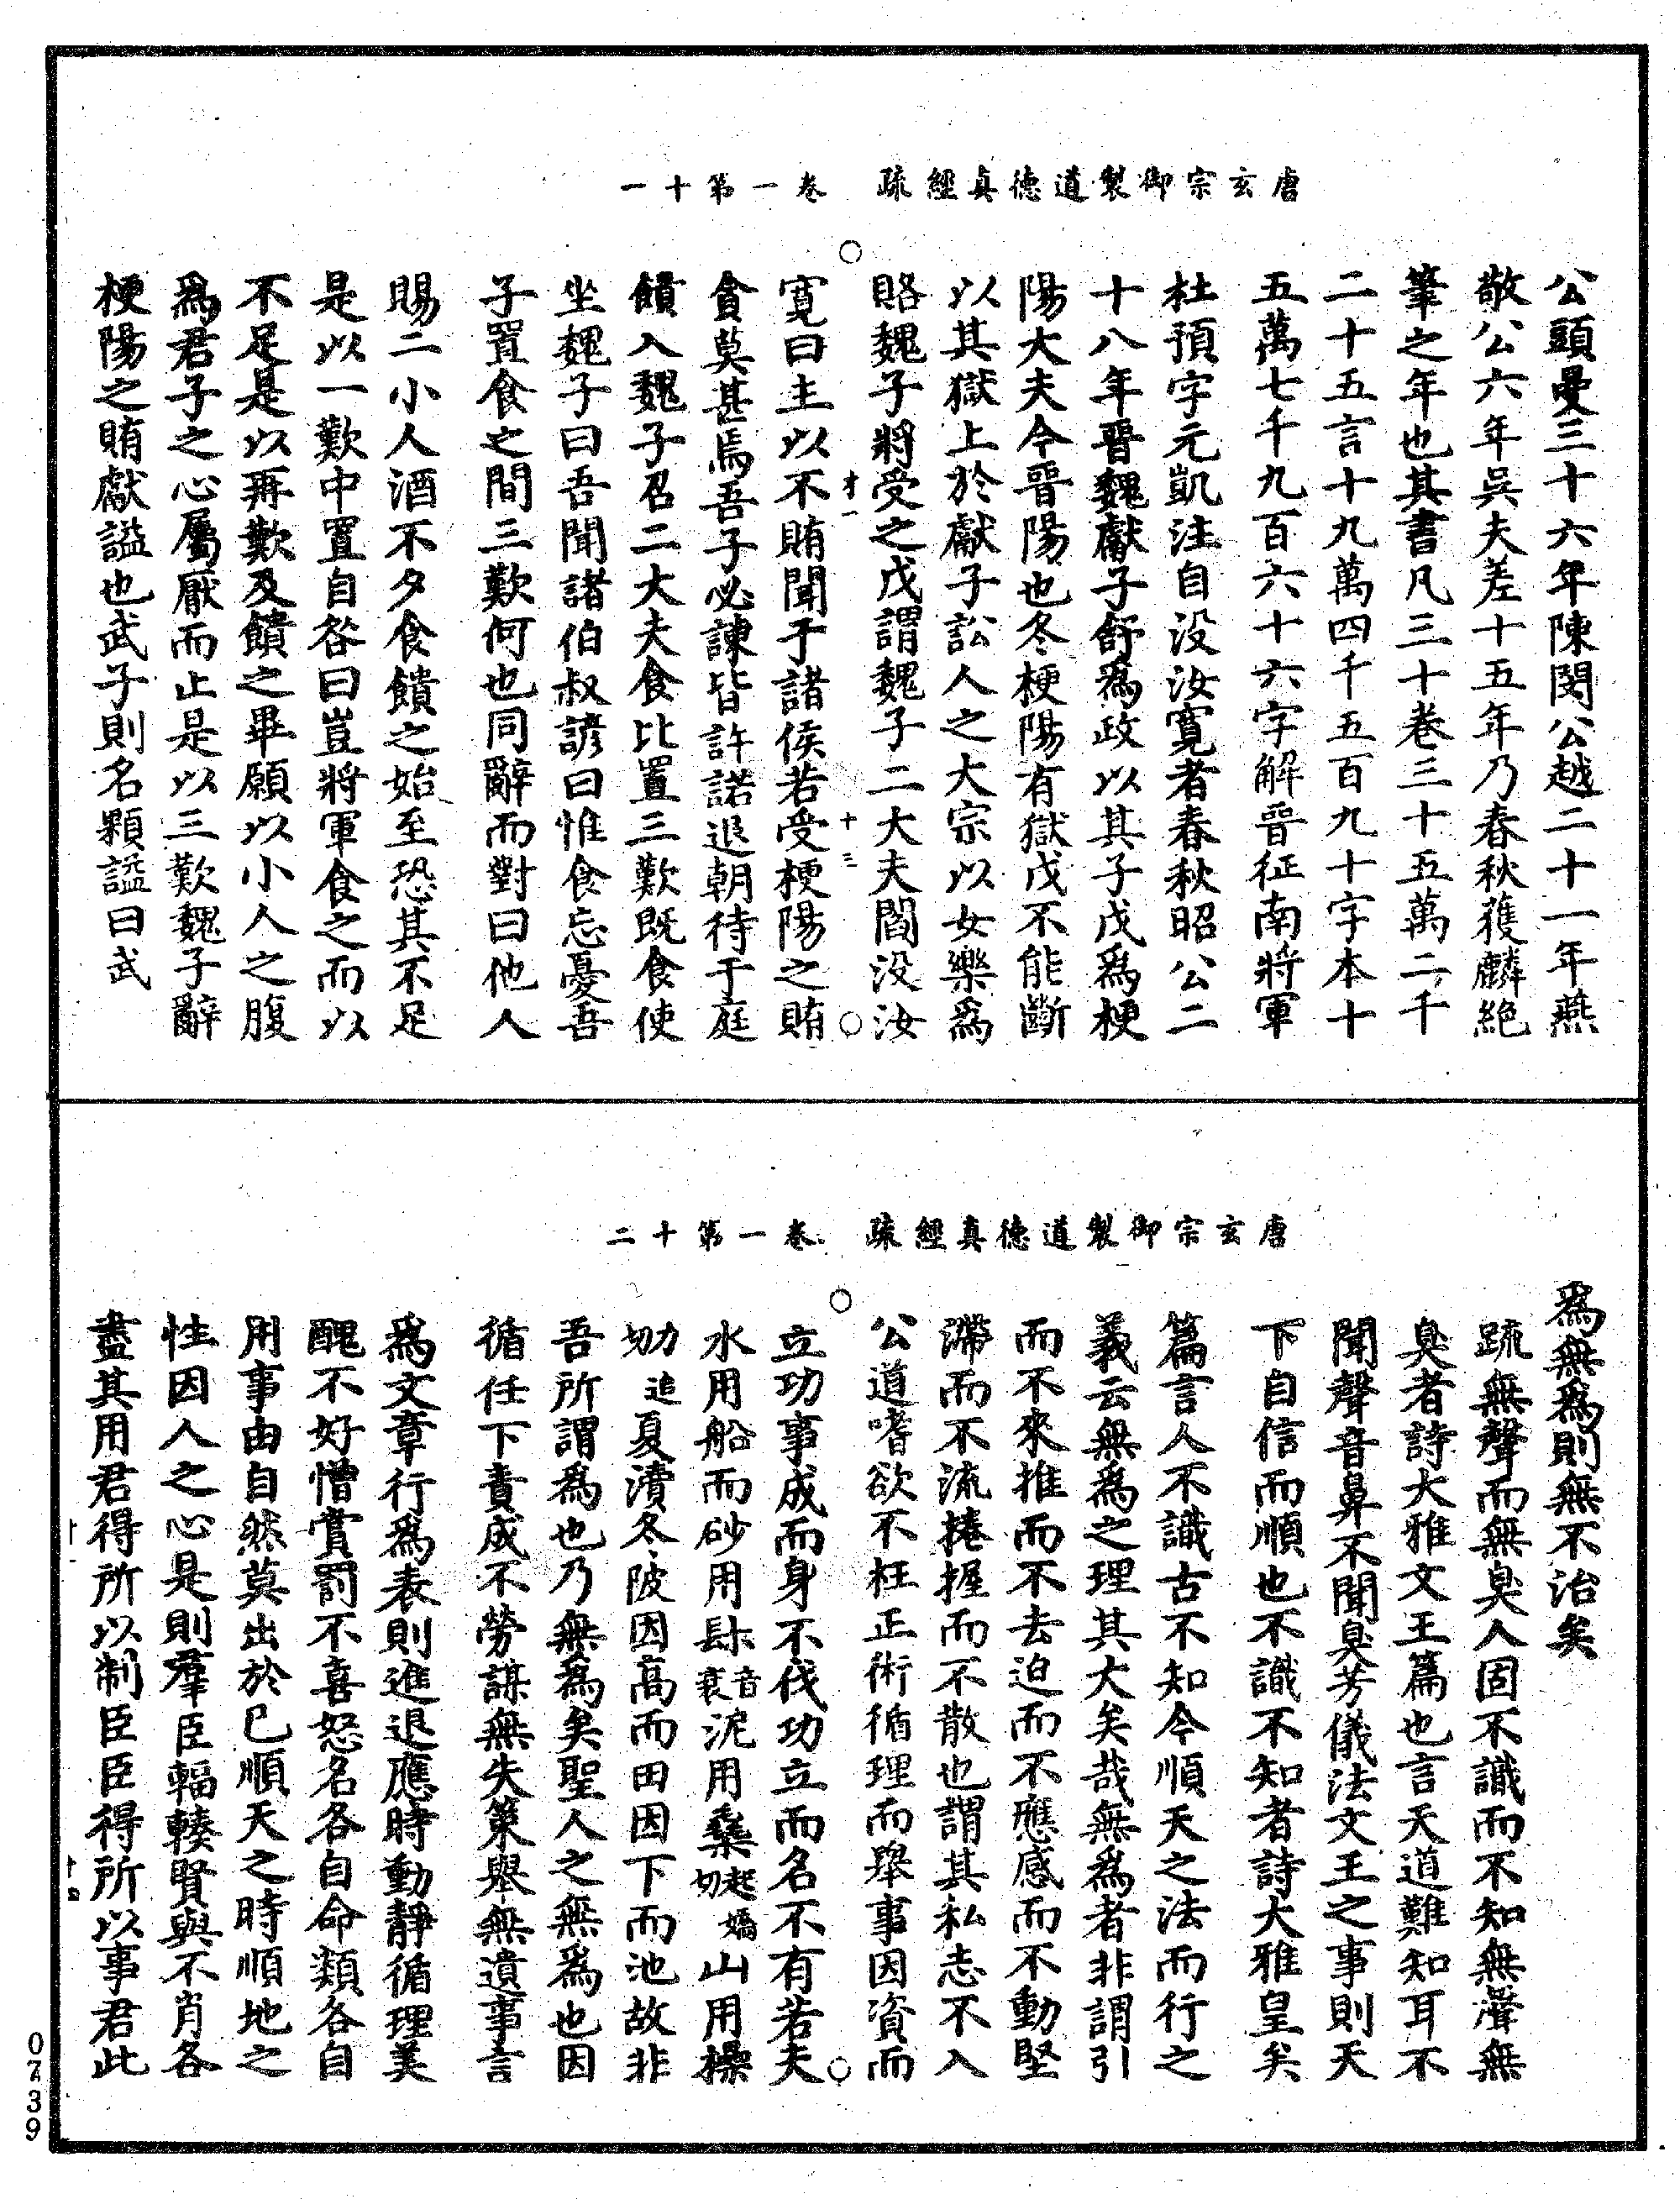 唐玄宗御製道德真經疏　卷一第十一
公頭曼三十六年陳閔公越二十一年燕
敬公六年吳夫差十五年乃春秋獲麟絕
筆之年也其書凡三十卷三十五萬二千
二十五言十九萬四千五百九十字本十
五萬七千九百六十六字解晉征南將軍
杜預字元凱注自没汝寬者春秋昭公二
十八年晉魏獻子舒爲政以其子戊爲梗
陽大夫今晉陽也冬梗陽有獄戊不能斷
以其獄上於獻子訟人之大宗以女樂爲
賂魏子將受之戊謂魏子二大夫閻没汝
寬曰主以不賄聞于諸侯若受梗陽之賄
貪莫甚焉吾子必諫皆許諾退朝待于庭
饋入魏子召二大夫食比置三歎既食使
坐魏子曰吾聞諸伯叔諺曰惟食忘憂吾
子置食之間三歎何也同辭而對曰他人
賜二小人酒不夕食饋之始至恐其不足
是以一歎中置自咎曰豈將軍食之而以
不足是以再歎及饋之畢願以小人之腹
爲君子之心屬厭而止是以三歎魏子辭
梗陽之賄獻謚也武子則名顆謚曰武
唐玄宗御製道德真經疏　卷一第十二
爲無爲則無不治矣
疏無聲而無臭人固不識而不知無聲無
臭者詩大雅文王篇也言天道難知耳不
聞聲音鼻不聞臭芳儀法文王之事則天
下自信而順也不識不知者詩大雅皇矣
篇言人不識古不知今順天之法而行之
義云無爲之理其大矣哉無爲者非謂引
而不來推而不去迫而不應感而不動堅
滯而不流捲握而不散也謂其私志不入
公道嗜欲不枉正術循理而舉事因資而
立功事成而身不伐功立而名不有若夫
水用船而砂用䟡音衰泥用橇起嬌切山用樏
追切夏瀆冬陂因高而田因下而池故非
吾所謂爲也乃無爲矣聖人之無爲也因
循任下責成不勞謀無失策舉無遺事言
爲文章行爲表則進退應時動靜循理美
醜不好憎賞罰不喜怒名各自命類各自
用事由自然莫出於已順天之時順地之
性因人之心是則羣臣輻輳賢與不肖各
盡其用君得所以制臣臣得所以事君此
0739